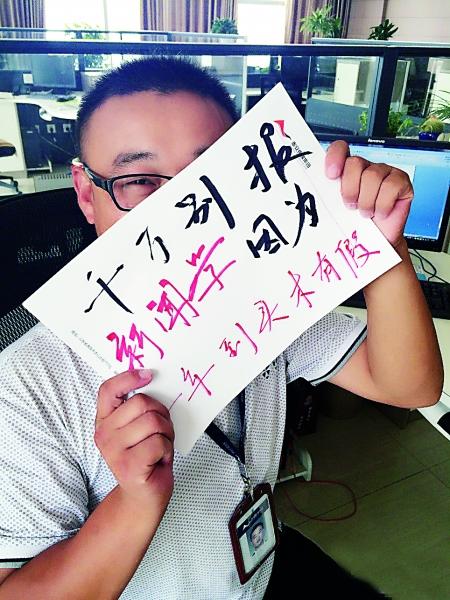 千万别报
新闻学 因为
一年到头未有假
lenovo